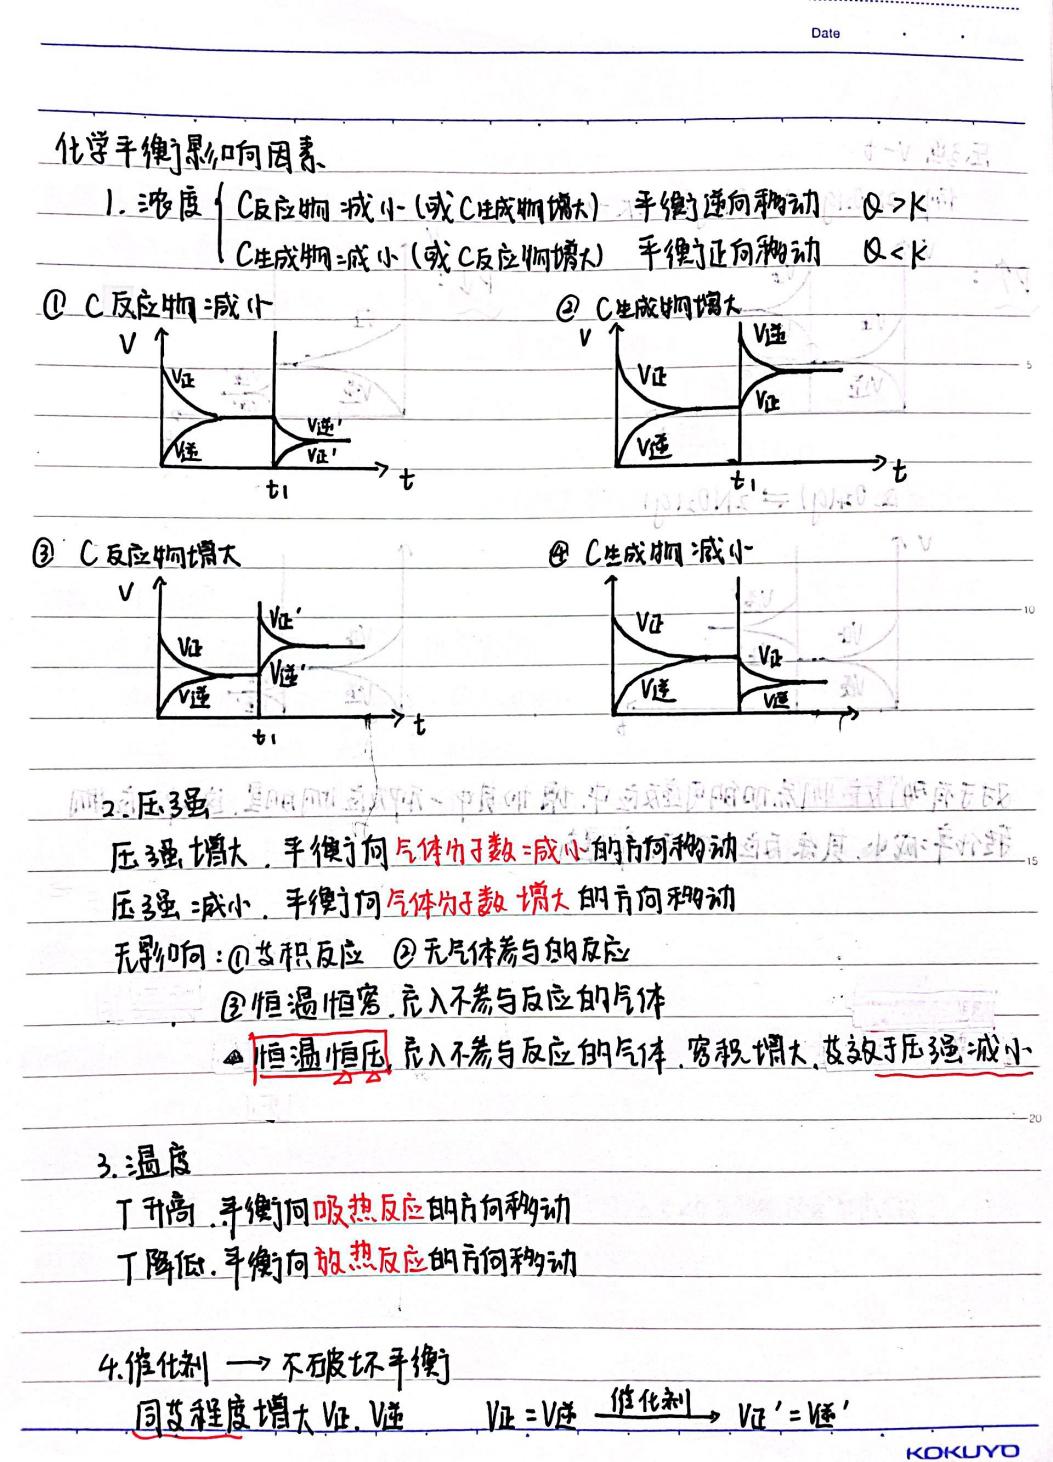 Date
化学平衡影响因素
1. 浓度 { C反应物减小(或C生成物增大) 平衡逆向移动 Q>K
C生成物减小(或C反应物增大) 平衡正向移动 Q<K
① C反应物减小 ② C生成物增大
V V V逆
V正 V正 V正
V逆 V逆' V正' V逆
t1 t t1 t
5
③ C反应物增大 ④ C生成物减小
V V正' V正
V正 V逆' V正
V逆 V逆 V逆
t1 t
10
2. 压强
压强增大, 平衡向气体分子数减小的方向移动
15
压强减小, 平衡向气体分子数增大的方向移动
无影响: ①等积反应 ②无气体参与的反应
③恒温恒容, 充入不参与反应的气体
恒温恒压, 充入不参与反应的气体, 容积增大, 等效于压强减小
20
3. 温度
T升高, 平衡向吸热反应的方向移动
T降低, 平衡向放热反应的方向移动
4. 催化剂 → 不破坏平衡
同等程度增大V正、V逆 V正=V逆 催化剂→ V正'=V逆'
KOKUYO